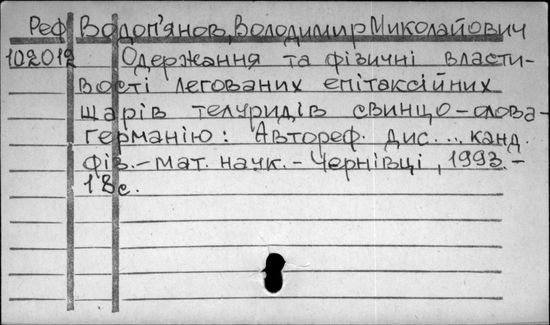 Реф Водоп'янов, Володимир Миколайович
102012 Одержання та фізичні власти-
вості легованих епітаксійних
шарів телуридів свинцо-олова-
германію: Автореф. дис.... канд.
фіз.-мат. наук.- Чернівці, 1993.-
18с.